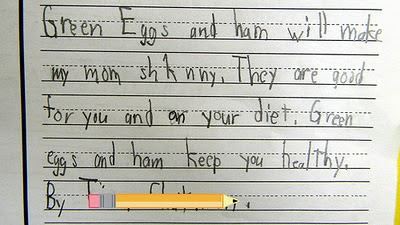 Green Eggs and ham will make
my mom shknny. They are good
for you and on your diet. Green
eggs and ham keep you healthy.
By